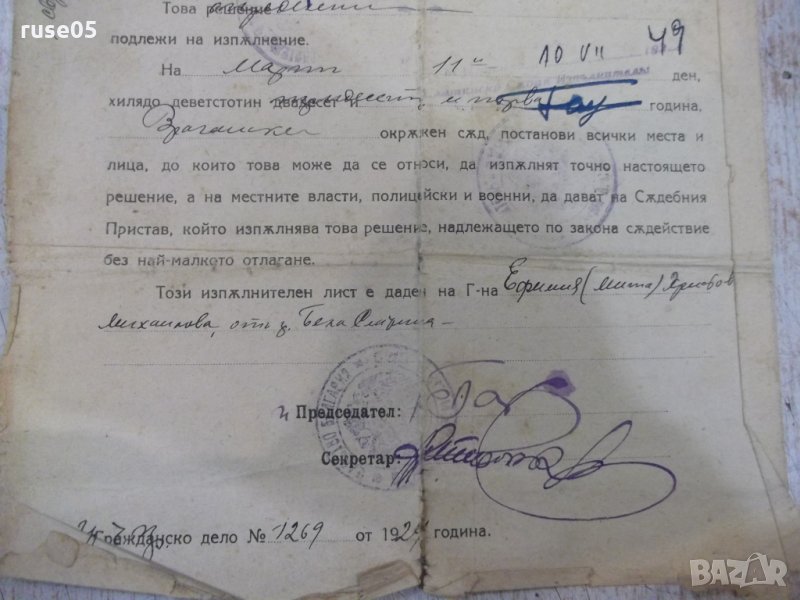 ruse05
Това решение
подлежи на изпѫлнение.
На Март 11ий 10 VII 49 ден,
хилядо деветстотин двадесет и тридесет и първа година,
Врачански окрѫжен сѫд, постанови всички места и
лица, до които това може да се относи, да изпѫлнят точно настоящето
решение, а на местните власти, полицейски и военни, да дават на Сѫдебния
Пристав, който изпѫлнява това решение, надлежащето по закона сѫдействие
без най-малкото отлагане.
Този изпѫлнителен лист е даден на Г-на Ефимия (Мита) Христов
Михайлова, от Бела Слатина
Председател:
Секретар:
Гражданско дело № 1269 от 1929 година.
BAZAR